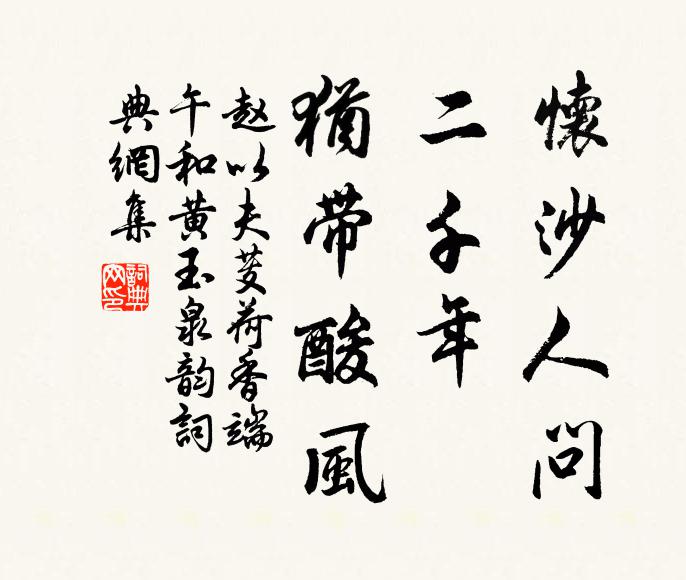 懷沙人問
二千年
猶帶酸風
赵以夫芰荷香端
午和黄玉泉韵詞
典網集
詞典
网印